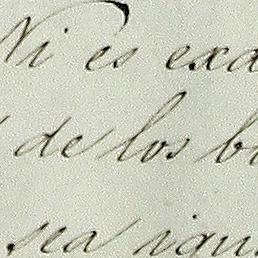 Ni es exa
de los bi
sea igua